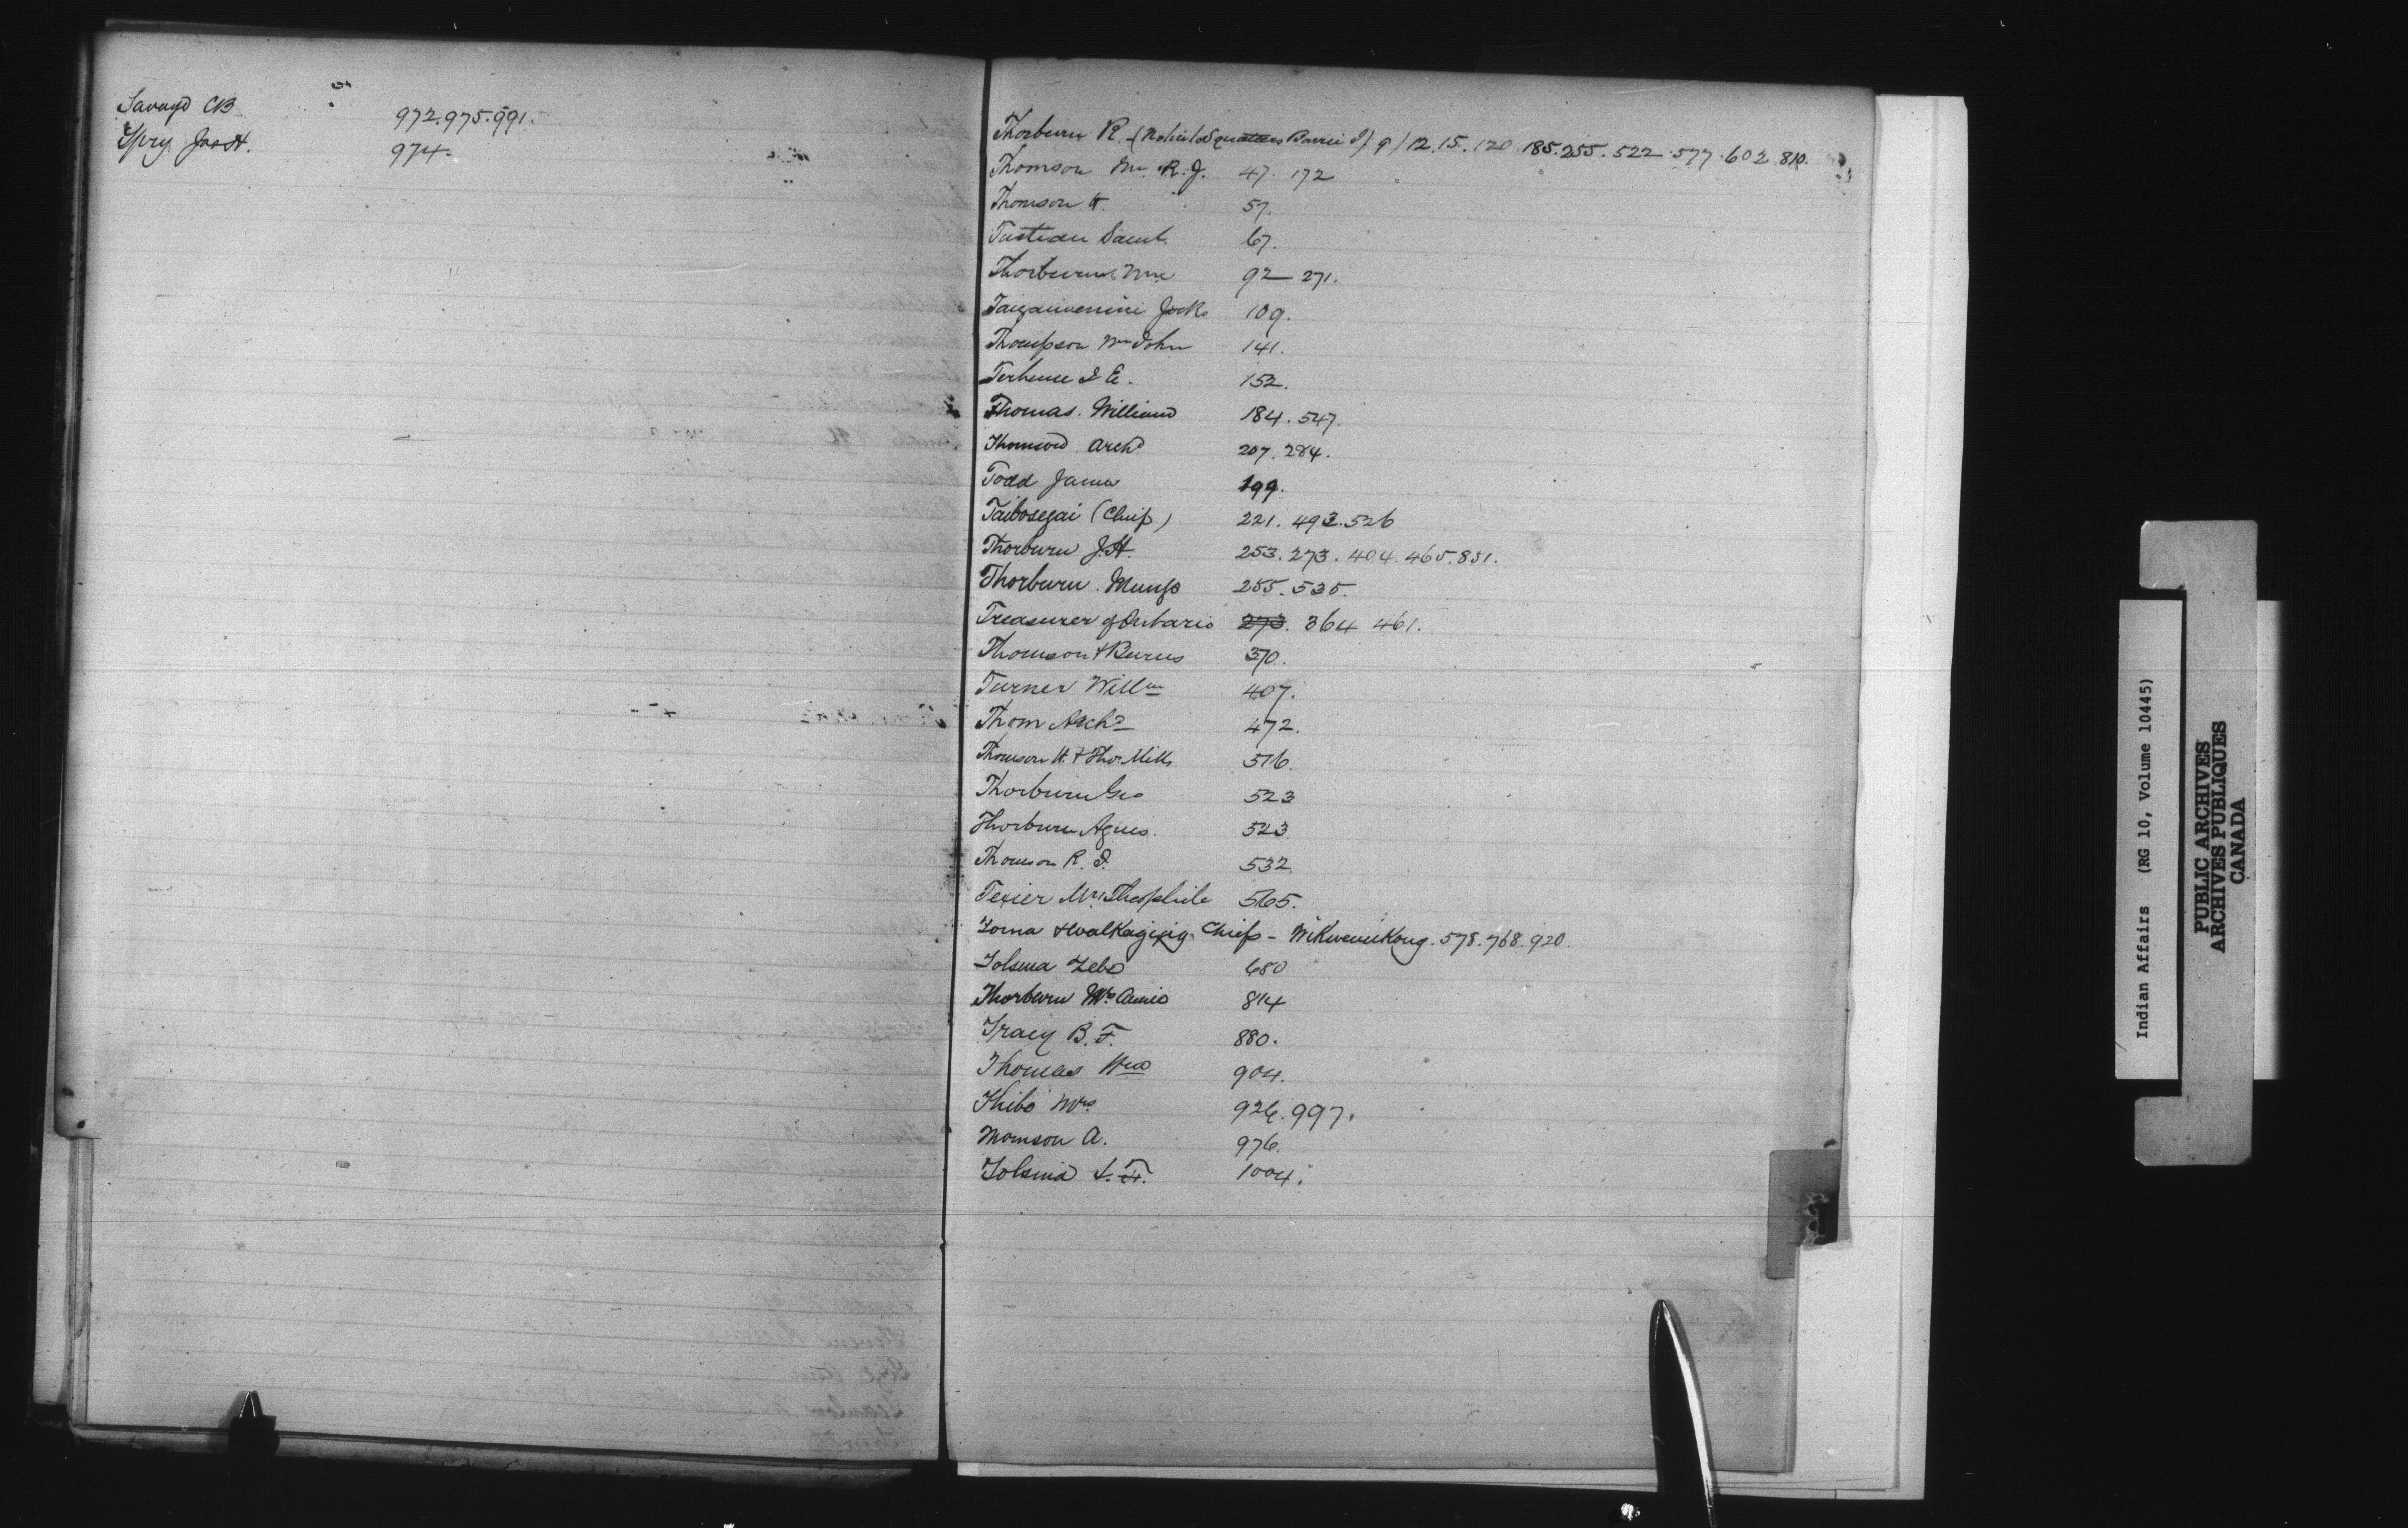 Savage CB 972.975.991.
Spry Jas H. 974.
Thorburn R. (Notice to Squatters Barrie I) 9) 12.15.120.185.255.522.577.602.810.
Thomson Mr. R.J. 47. 172
Thomson H. 57.
Tustian Saml. 67.
Thorburn Wm 92 271.
Jack 109.
Thompson Wm John 141.
Terhune I E. 152.
Thomas. William 184. 547.
Thomson Archd 207. 284.
Todd James 199.
Taibosegai (Chief) 221. 493. 526
Thorburn J.H. 253. 273. 404. 465. 851.
Thorburn. Mungo 255. 535.
Treasurer of Ontario 273. 364 461.
Thomson & Burns 370.
Turner Willm 407.
Thom Archd 472.
Thomson H. & Thos. Mills 516.
Thorburn Geo 523
Thorburn Agnes. 523
Thomson R. J. 532.
Texier Mr. Theophile 565.
Toma & Chiefs - Wikwemikong. 578. 768. 920.
Tolsma Zebo 680
Thorburn Mrs Annie 814
Tracy B. F. 880.
Thomas Wm 904.
Thibo Mrs 926. 997.
Thomson A. 976.
Tolsma 1004.
Indian Affairs (RG 10, Volume 10445)
PUBLIC ARCHIVES
ARCHIVES PUBLIQUES
CANADA